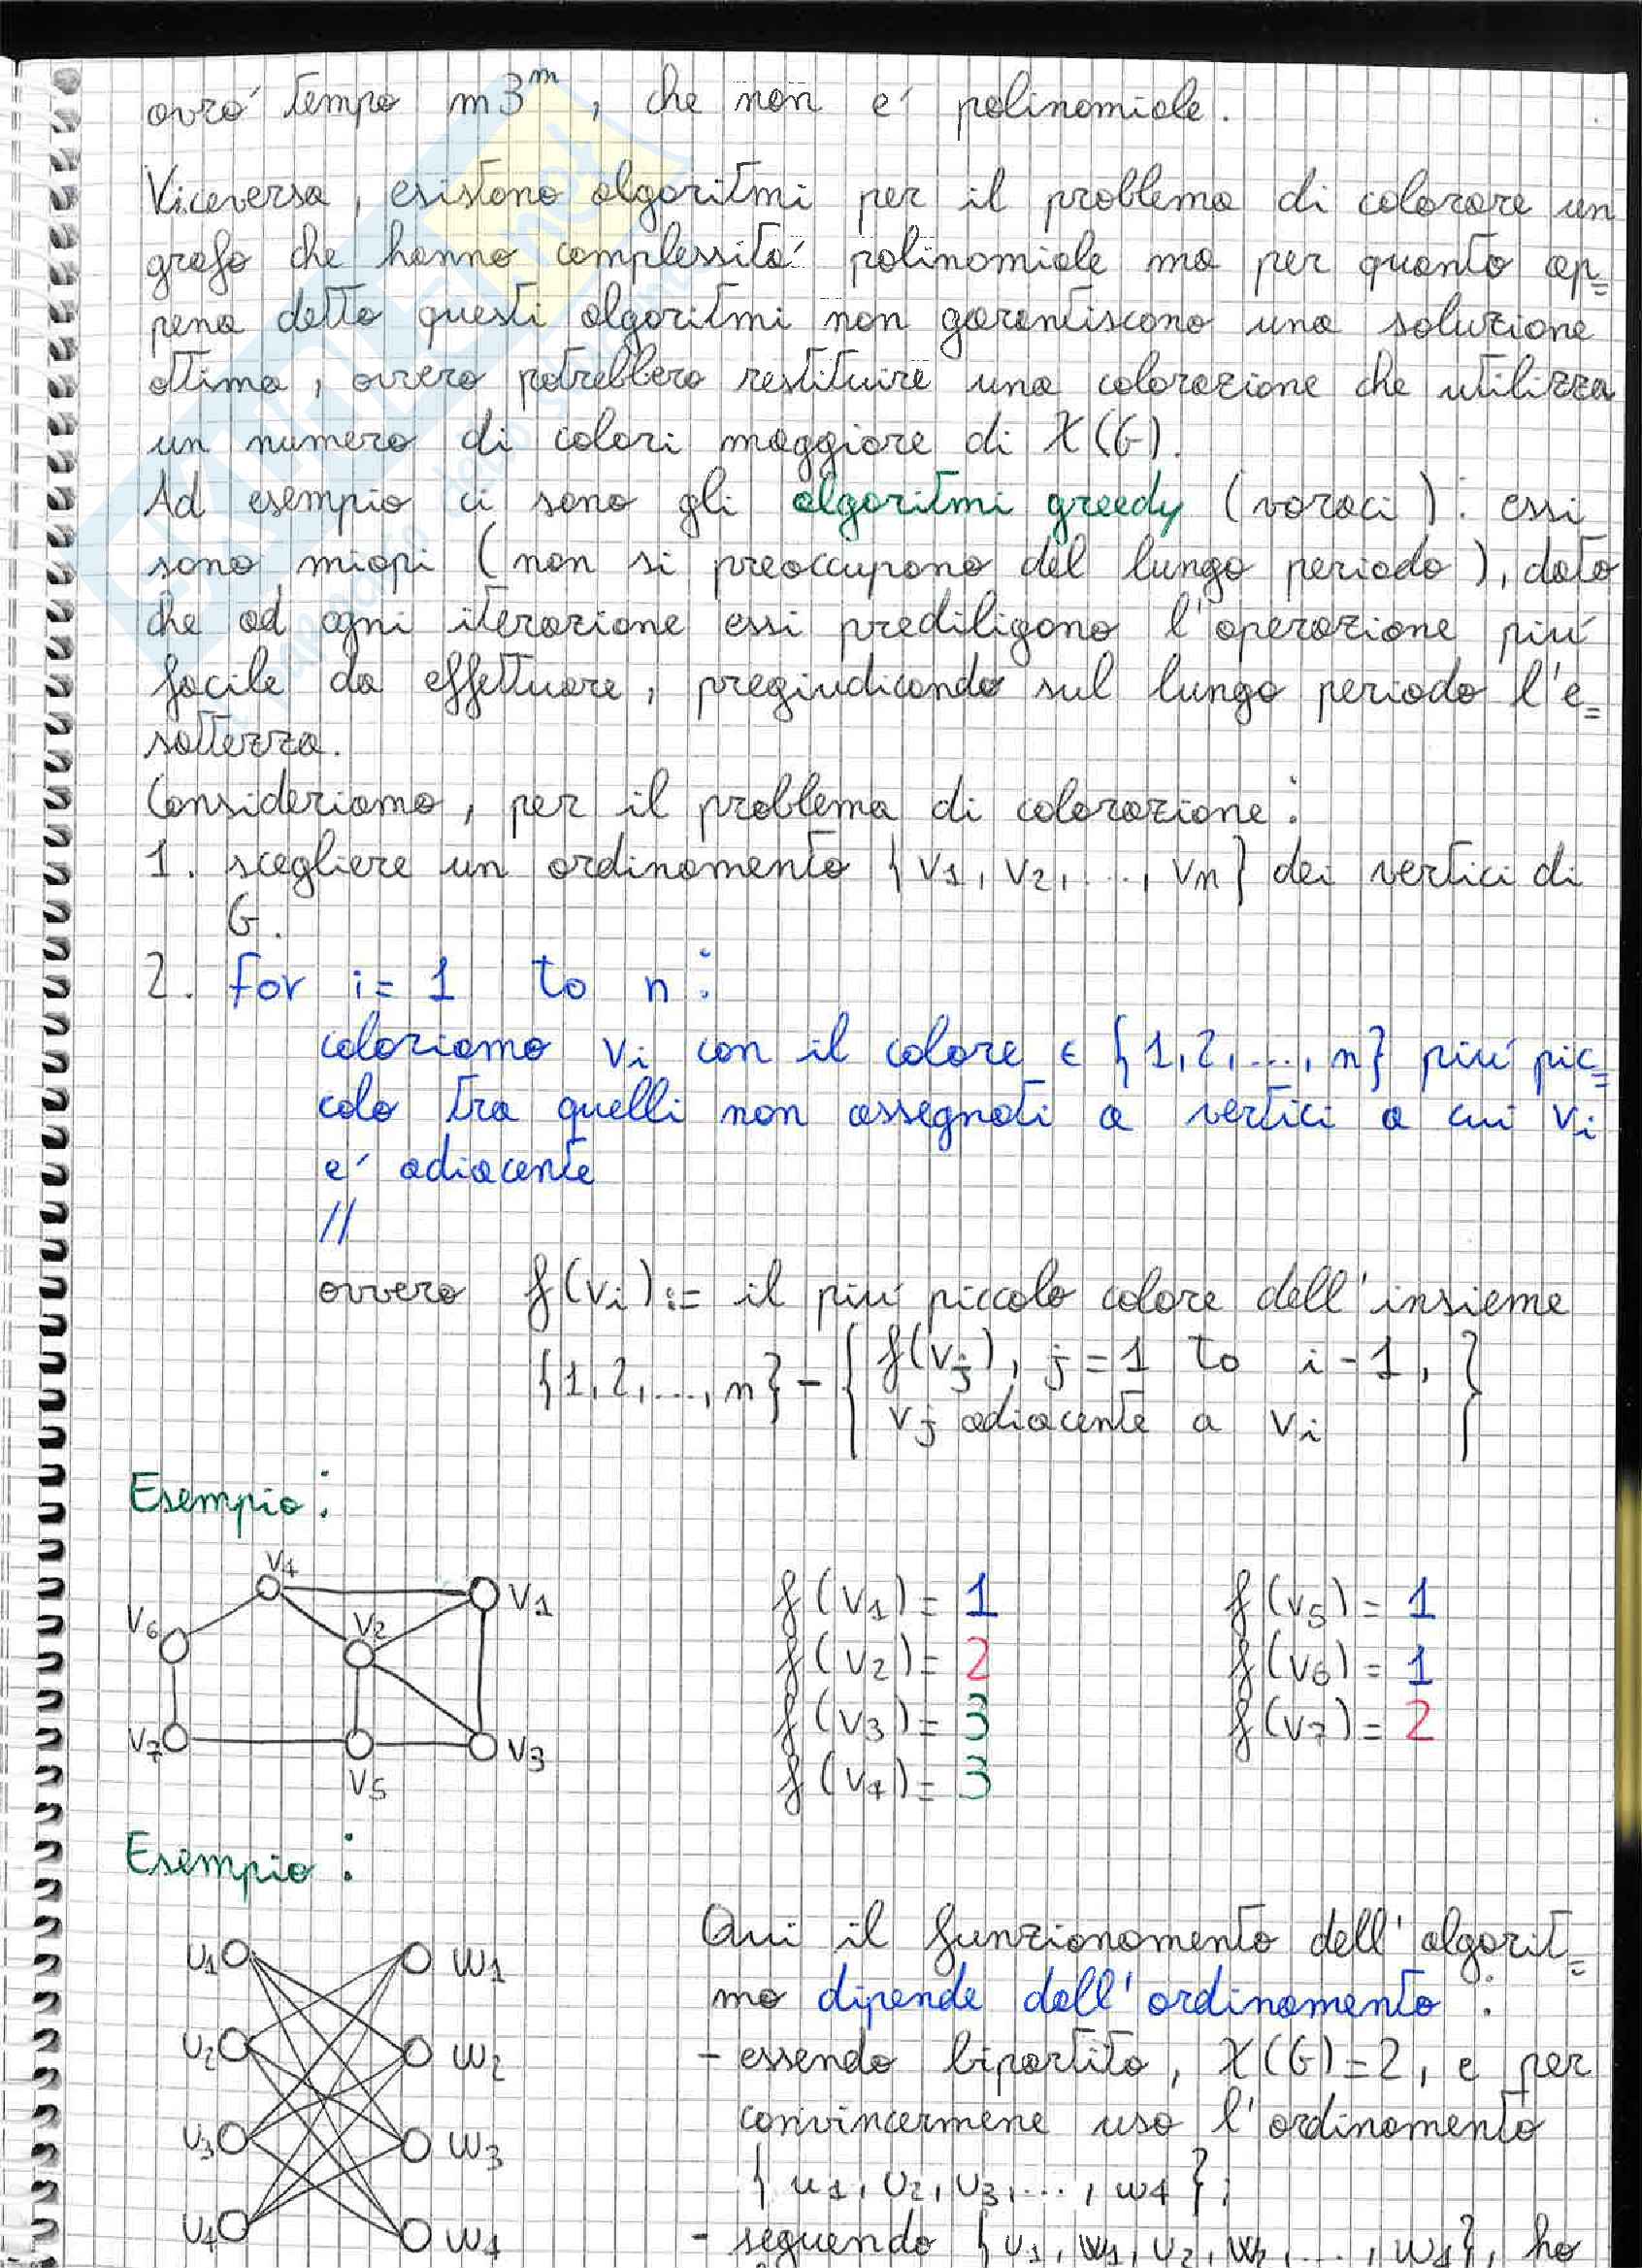 avró tempo m3^m, che non é polinomiale.
Viceversa, esistono algoritmi per il problema di colorare un
grafo che hanno complessitá polinomiale ma per quanto ap=
pena detto questi algoritmi non garantiscono una soluzione
ottima, ovvero potrebbero restituire una colorazione che utilizza
un numero di colori maggiore di χ(G).
Ad esempio ci sono gli algoritmi greedy (voraci): essi
sono miopi (non si preoccupano del lungo periodo), dato
che ad ogni iterazione essi prediligono l'operazione piú
facile da effettuare, pregiudicando sul lungo periodo l'e=
sattezza.
Consideriamo, per il problema di colorazione:
1. scegliere un ordinamento {v1, v2, ..., vn} dei vertici di
G.
2. for i=1 to n:
coloriamo vi con il colore ∈ {1,2,...,n} piú pic=
colo tra quelli non assegnati a vertici a cui vi
é adiacente
//
ovvero f(vi):= il piú piccolo colore dell'insieme
{1,2,...,n} - { f(vj), j=1 to i-1,
vj adiacente a vi }
Esempio:
v4
v1
v6
v2
v7
v5
v3
f(v1)= 1
f(v2)= 2
f(v3)= 3
f(v4)= 3
f(v5)= 1
f(v6)= 1
f(v7)= 2
Esempio:
u1 w1
u2 w2
u3 w3
u4 w4
Qui il funzionamento dell'algorit=
mo dipende dall'ordinamento:
- essendo bipartito, χ(G)=2, e per
convincermene uso l'ordinamento
{u1, u2, u3, ..., w4};
- seguendo {u1, w1, u2, w2, ..., w4}, ho